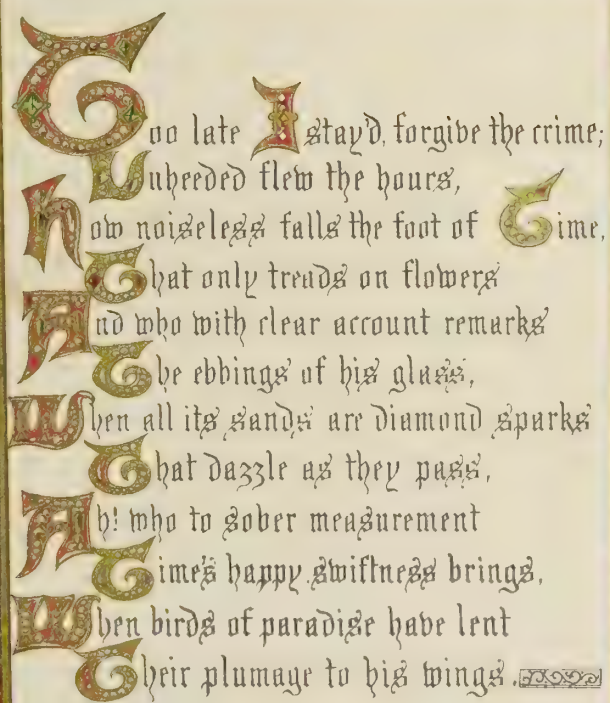 Too late I stay'd, forgive the crime;
Unheeded flew the hours,
How noiseless falls the foot of Time,
That only treads on flowers
And who with clear account remarks
The ebbings of his glass,
When all its sands are diamond sparks
That dazzle as they pass,
Ah! who to sober measurement
Time's happy swiftness brings,
When birds of paradise have lent
Their plumage to his wings.